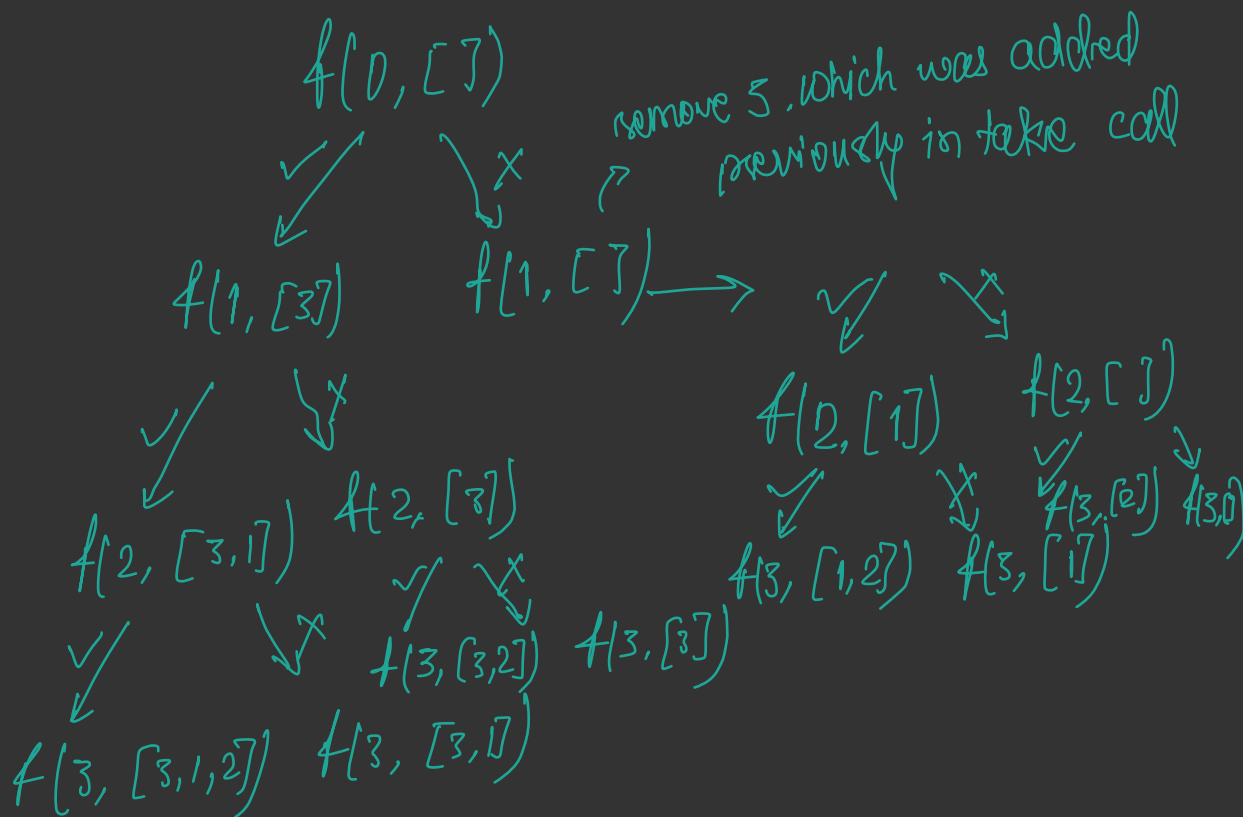 f(0, [ ])
remove 3. which was added
previously in take call
f(1, [3]) f(1, [ ])
f(2, [1]) f(2, [ ])
f(2, [3,1]) f(2, [3])
f(3, [2]) f(3, [])
f(3, [1,2]) f(3, [1])
f(3, [3,2]) f(3, [3])
f(3, [3,1,2]) f(3, [3,1])